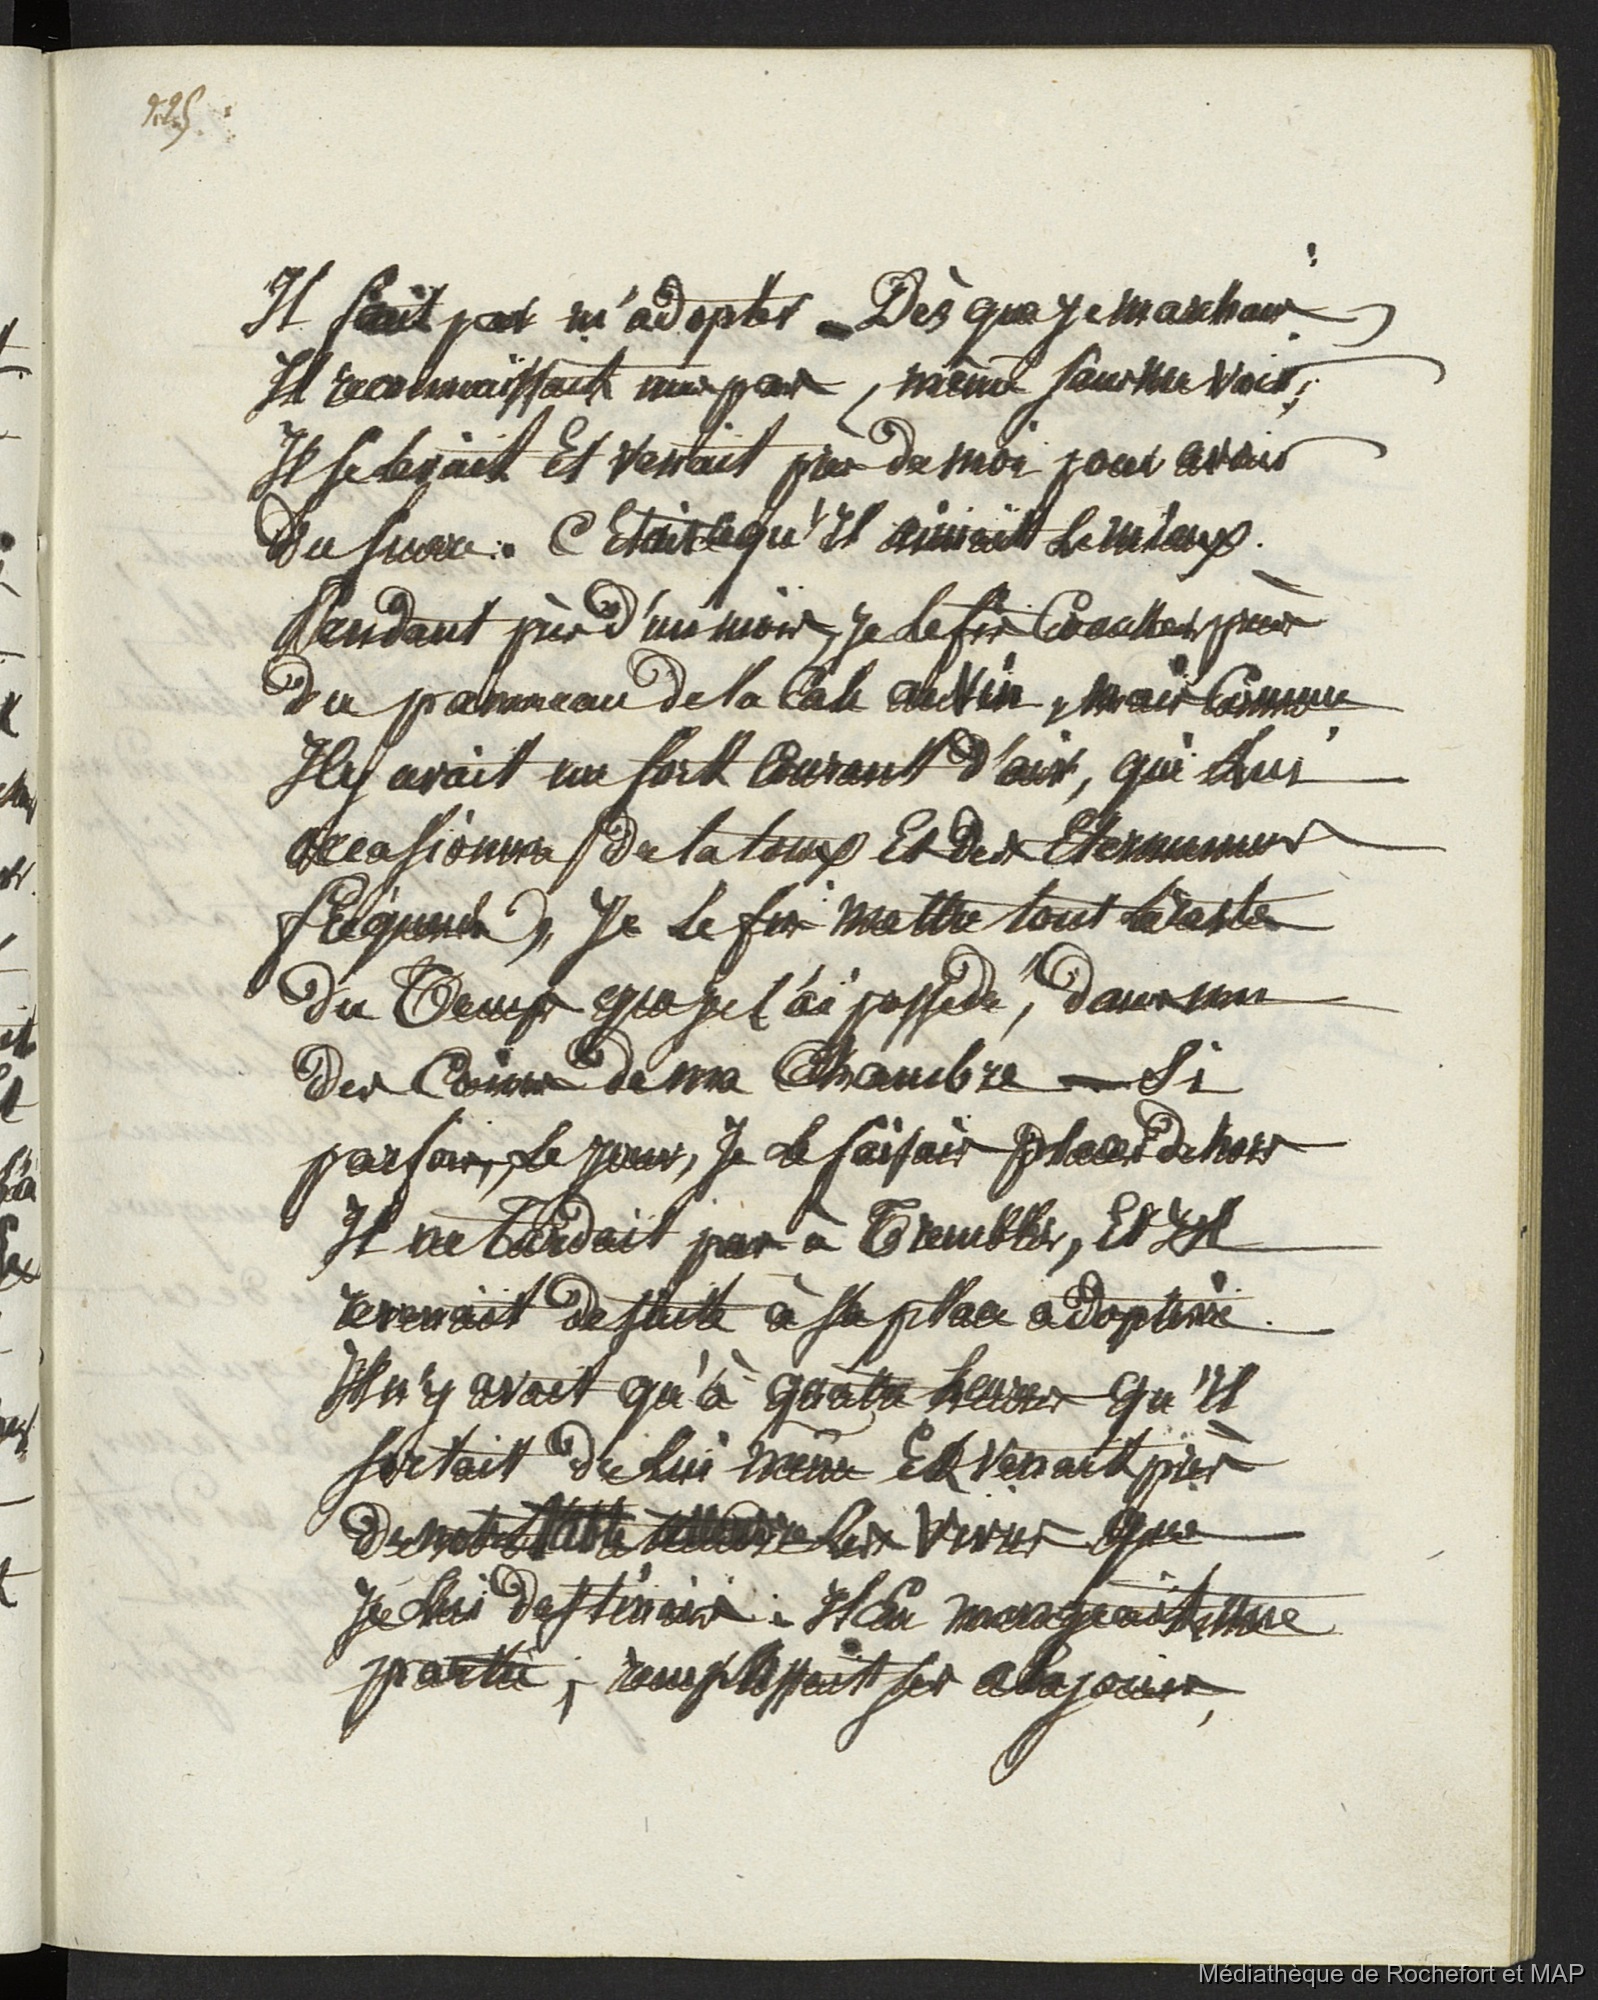 Il finit par m'adopter _ Dès que je marchais
Il reconnaissait mes pas, même sans me voir;
Il se levait Et venait près de moi pour avoir
du sucre. C'Etait ce qu'Il aimait le mieux.
Pendant près d'un mois, je le fis Coucher près
du panneau de la Cale au Vin, mais Comme
Il y avait un fort Courant d'air, qui lui
occasionna (de la toux Et des Eternumens
fréquens), Je le fis mettre tout le reste
du Temps que je l'ai possédé, dans un
des Coins de ma Chambre — Si
parfois, le jour, Je le faisais placer dehors
Il ne tardait pas à Trembler, Et Il
revenait de suite à sa place adoptive.
Il n'y avait qu'à quatre heures qu'Il
sortait de lui même Et venait près
de notre table les vivres que
Je lui destinais. Il En mangeait une
partie; remplissait ses abajoues,
Médiathèque de Rochefort et MAP